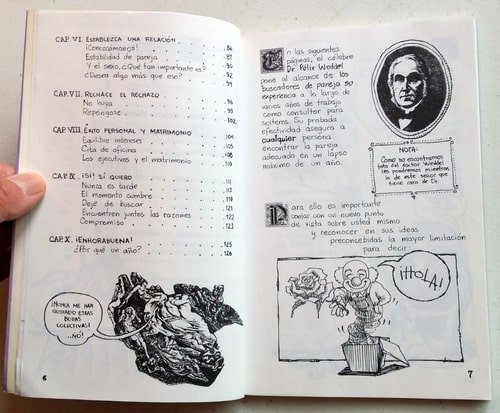 CAP. VI. ESTABLEZCA UNA RELACIÓN
¡Conozcámonos! 86
Estabilidad de pareja 87
Y el sexo, ¿Qué tan importante es? 90
¿Desea algo más que eso? 92
CAP. VII. RECHACE EL RECHAZO 94
No huya 95
Repóngase 99
CAP. VIII. ÉXITO PERSONAL Y MATRIMONIO 101
Equilibre intereses 104
Cita de oficina 106
Los ejecutivos y el matrimonio 110
CAP. IX. ¡SÍ! SÍ QUIERO
Nunca es tarde
El momento cumbre
Deje de buscar
Encuentren juntos las razones
Compromiso
CAP. X. ¡ENHORABUENA! 125
¿Por qué un año? 126
¡NUNCA ME HAN
GUSTADO ESTAS
BODAS
COLECTIVAS!
...NO!
6
En las siguientes
páginas, el célebre
Dr. Félix Weddel
pone al alcance de los
buscadores de pareja su
experiencia a lo largo de
varios años de trabajo
como consultor para
solteros. Su probada
efectividad asegura a
cualquier persona
encontrar la pareja
adecuada en un lapso
máximo de un año.
NOTA:
Como no encontramos
foto del doctor Weddel
les pondremos mientras
la de este señor que
tiene cara de Dr.
Para ello es importante
contar con un nuevo punto
de vista sobre usted mismo
y reconocer en sus ideas
preconcebidas la mayor limitación
para decir:
¡HOLA!
7